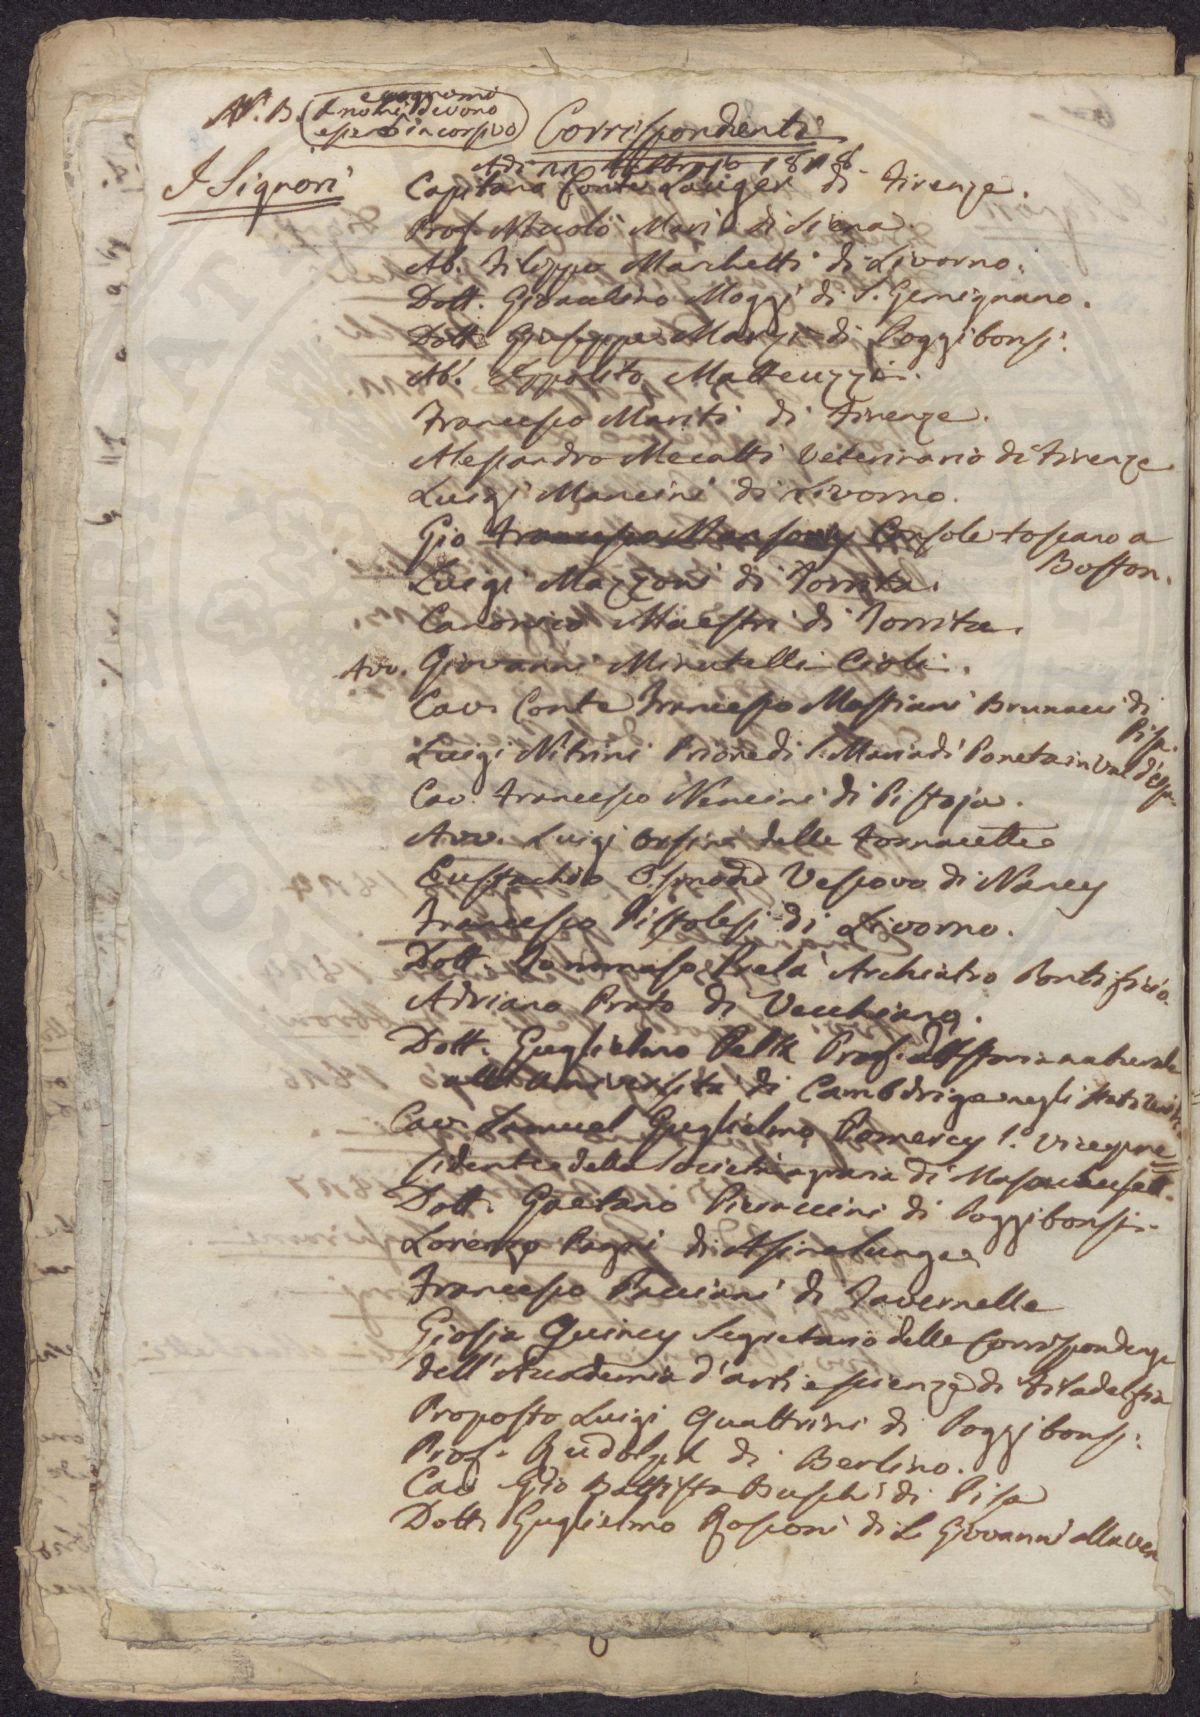 N.B. I nomi e cognomi devono
essere in corsivo
Corrispondenti
I Signori
Adi 22 Febbrajo 1818
Capitano Conte Lauger di Firenze.
Prof. Niccolò Mari di Siena.
Ab. Filippo Marchetti di Livorno.
Dott. Gioacchino Moggi di S. Gemignano.
Dott. Giuseppe Marzi di Poggibonsi.
Ab. Ippolito Matteuzzi.
Francesco Mariti di Firenze.
Alessandro Mecatti Veterinario di Firenze
Luigi Mancini di Livorno.
Gio Francesco Console toscano a
Boston.
Luigi Mazzoni di Torrita.
Canonico Maestri di Torrita.
Avv. Giovanni Minutelli Cioli.
Cav. Conte Francesco Mastiani Brunacci di
Pisa.
Luigi Nitrini Priore di S. Maria di Poneta in Val d'Elsa
Cav. Francesco Nencini di Pistoja.
Avv. Luigi Orsini delle Fornacette
Eustachio Osmond Vescovo di Nancy
Francesco Pistolesi di Livorno.
Dott. Tommaso Prelà Archiatro Pontificio.
Adriano Prato di Vecchiano.
Dott. Guglielmo Pelk Prof. d'Istoria naturale
all'Università di Cambdrige negli Stati Uniti.
Cav. Samuel Guglielmo Pomercy 1.º Vicepre
sidente della Società agraria di Massacusett.
Dott. Gaetano Pieraccini di Poggibonsi.
Lorenzo Pagni di Asinalunga
Francesco Pacciani di Tavernelle
Giosia Quincy Segretario delle Corrispondenze
dell'Accademia d'arti e scienze di Filadelfia
Proposto Luigi Quattrini di Poggibonsi.
Prof. Rudolph di Berlino.
Cav Gio Battista Ruschi di Pisa
Dott Guglielmo Rosconi di S. Giovanni alla Vena